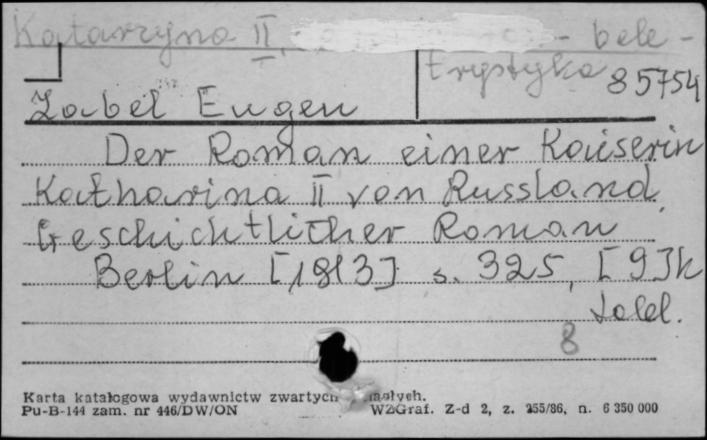 Katarzyna II, - bele-
trystyka 85754
Zabel Eugen
Der Roman einer Kaiserin
Katharina II von Russland.
Geschichtlicher Roman
Berlin [1913] s. 325, [9] k
8
Karta katalogowa wydawnictw zwartych
Pu-B-144 zam. nr 446/DW/ON WZGraf. Z-d 2, z. 255/86, n. 6 350 000